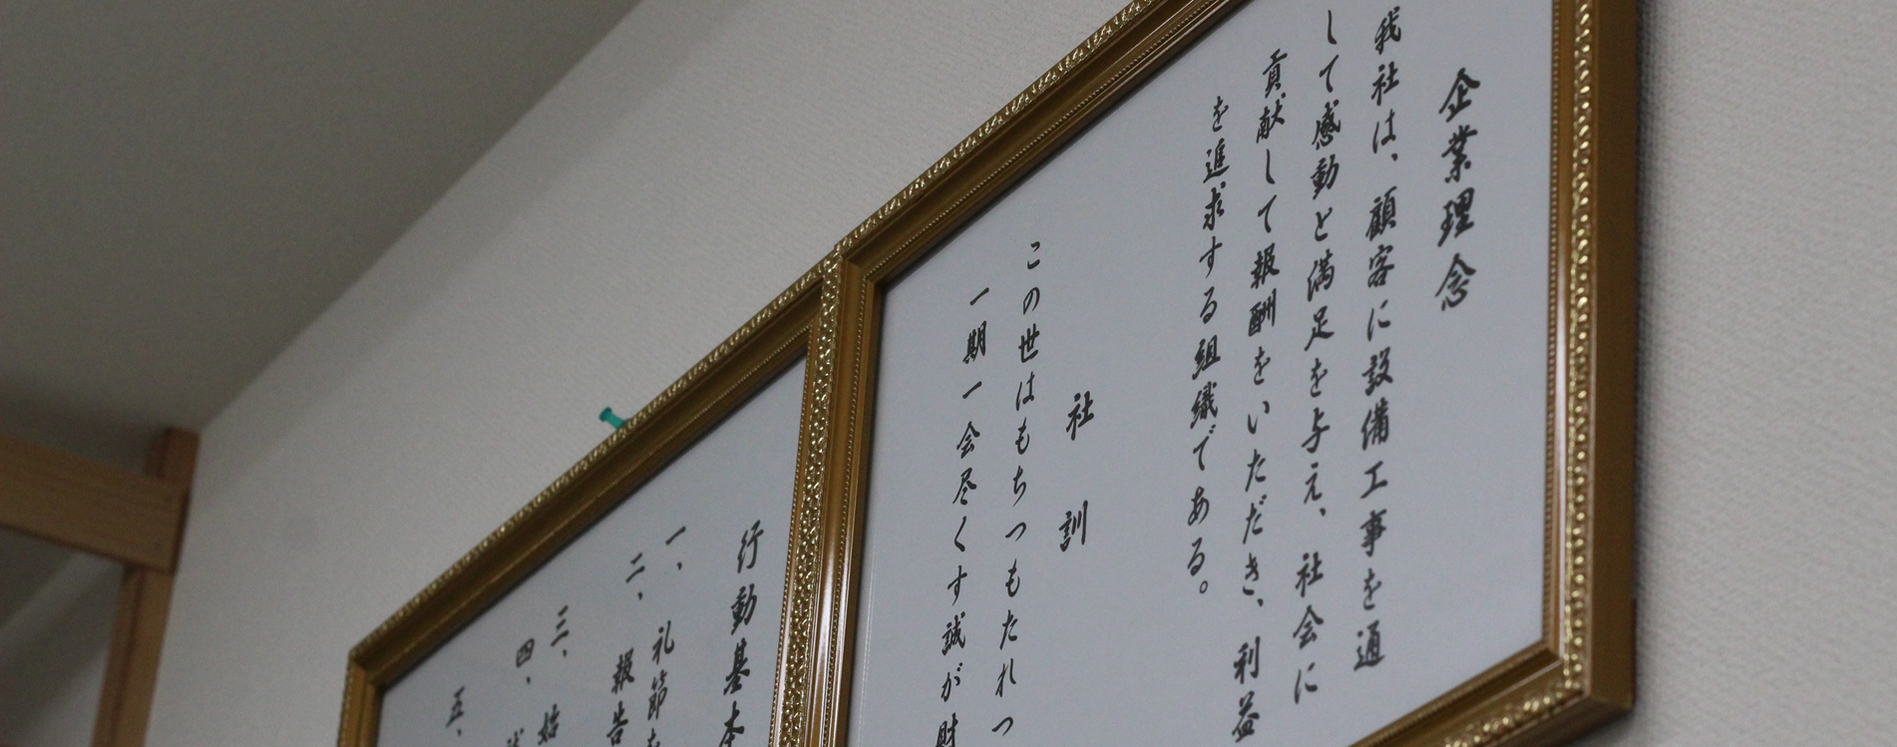 企業理念
我社は、顧客に設備工事を通
して感動と満足を与え、社会に
貢献して報酬をいただき、利益
を進求する組織である。
社訓
この世はもちつもたれつ
一期一会尽くす誠が財
行動基本
一、礼節を
二、報告
三、始
四、
五、